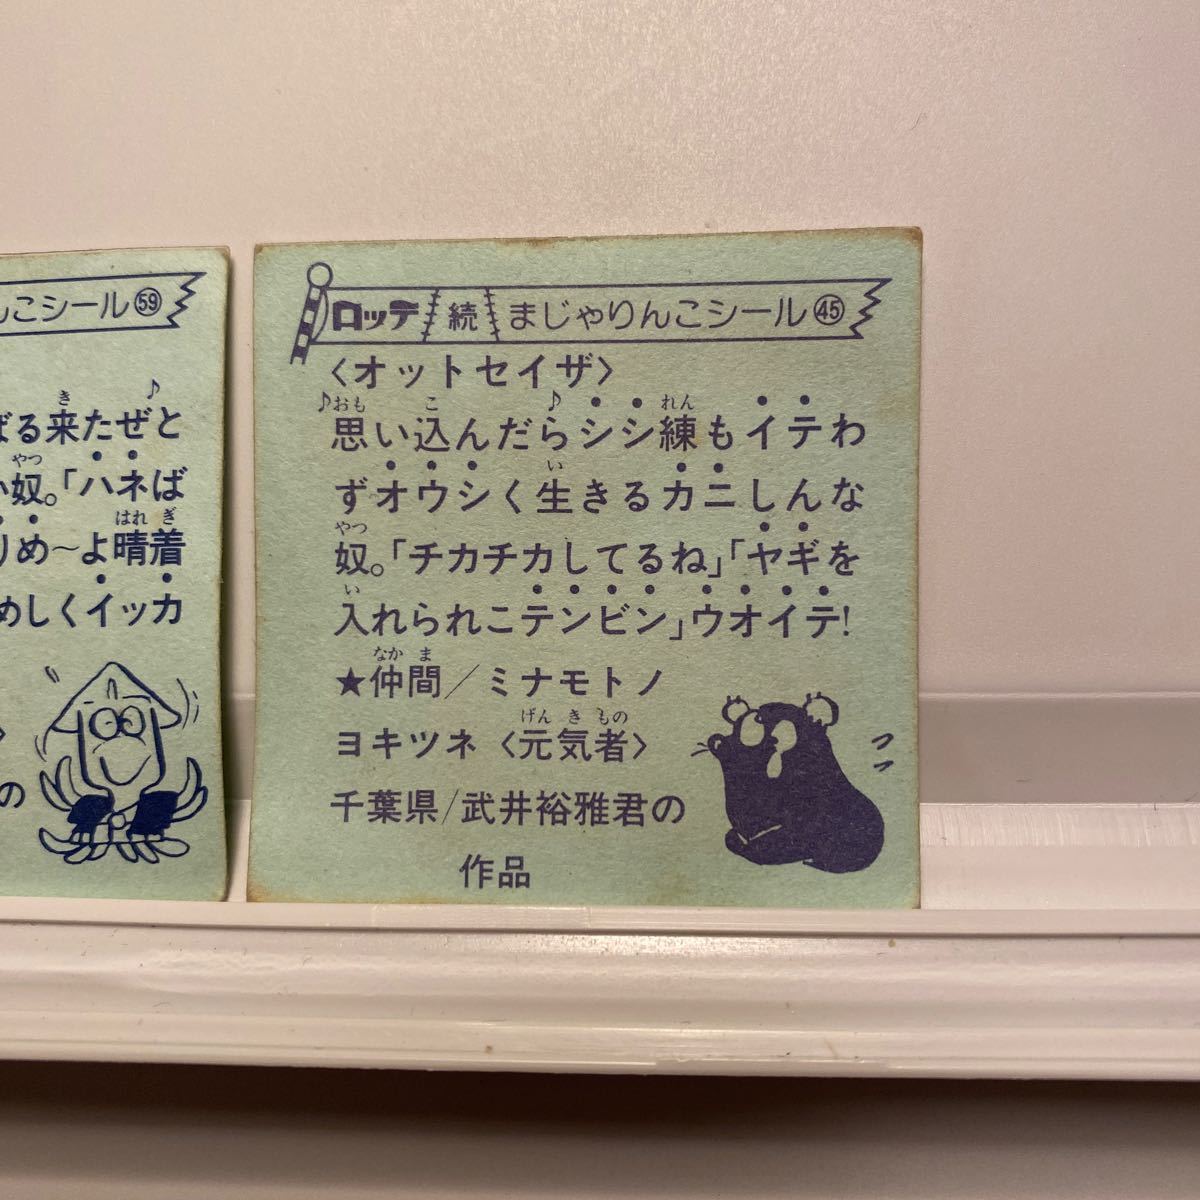 んこシール59
ばる来たぜと
奴。「ハネば
りめ〜よ晴着
めしくイッカ
の
ロッテ 続 まじゃりんこシール45
〈オットセイザ〉
♪思い込んだら♪シシ練もイテわ
ずオウシく生きるカニしんな
奴。「チカチカしてるね」「ヤギを
入れられこテンビン」ウオイテ!
★仲間/ミナモトノ
ヨキツネ〈元気者〉
千葉県/武井裕雅君の
作品